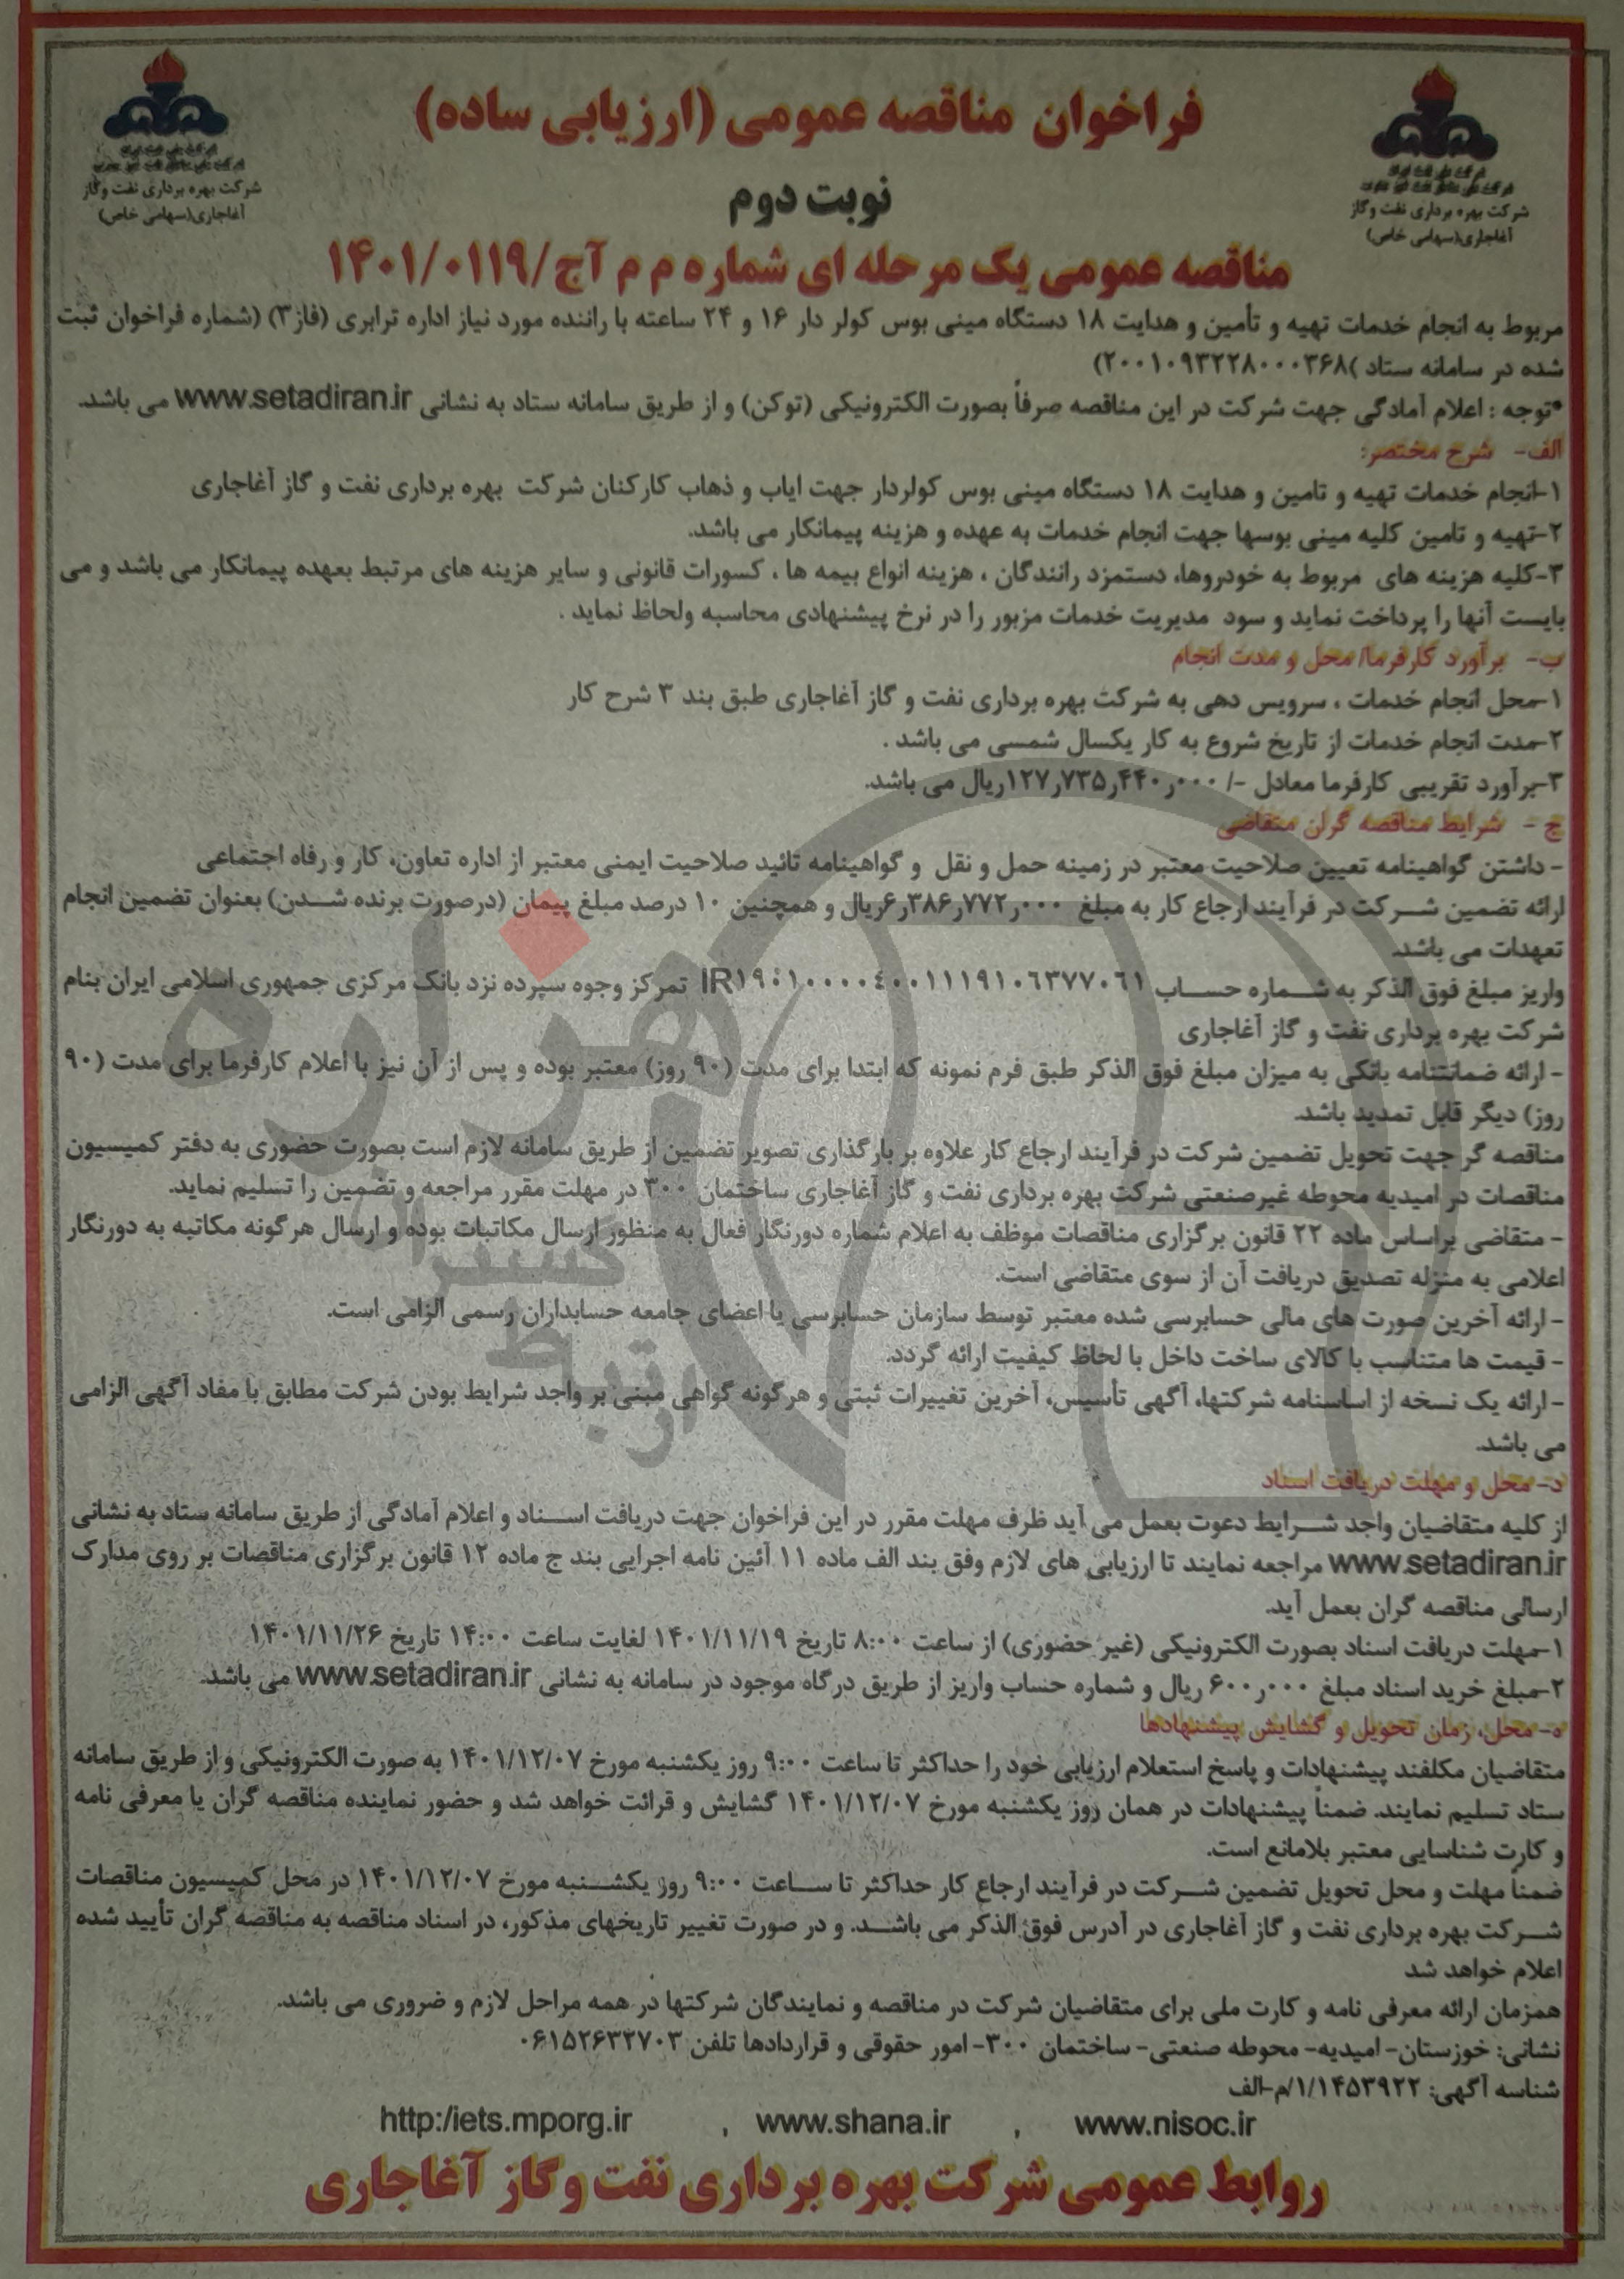 فراخوان مناقصه عمومی (ارزیابی ساده)
نوبت دوم
شرکت بهره برداری نفت وگاز
آغاجاری(سهامی خاص)
شرکت بهره برداری نفت وگاز
آغاجاری(سهامی خاص)
مناقصه عمومی یک مرحله ای شماره م م آج/۱۴۰۱/۰۱۱۹
مربوط به انجام خدمات تهیه و تأمین و هدایت ۱۸ دستگاه مینی بوس کولر دار ۱۶ و ۲۴ ساعته با راننده مورد نیاز اداره ترابری (فاز۳) (شماره فراخوان ثبت
شده در سامانه ستاد )۲۰۰۱۰۹۳۲۲۸۰۰۰۳۶۸)
*توجه : اعلام آمادگی جهت شرکت در این مناقصه صرفاً بصورت الکترونیکی (توکن) و از طریق سامانه ستاد به نشانی www.setadiran.ir می باشد.
الف- شرح مختصر:
۱-انجام خدمات تهیه و تامین و هدایت ۱۸ دستگاه مینی بوس کولردار جهت ایاب و ذهاب کارکنان شرکت بهره برداری نفت و گاز آغاجاری
۲-تهیه و تامین کلیه مینی بوسها جهت انجام خدمات به عهده و هزینه پیمانکار می باشد.
۳-کلیه هزینه های مربوط به خودروها، دستمزد رانندگان ، هزینه انواع بیمه ها ، کسورات قانونی و سایر هزینه های مرتبط بعهده پیمانکار می باشد و می
بایست آنها را پرداخت نماید و سود مدیریت خدمات مزبور را در نرخ پیشنهادی محاسبه ولحاظ نماید .
ب- برآورد کارفرما/ محل و مدت انجام
۱-محل انجام خدمات ، سرویس دهی به شرکت بهره برداری نفت و گاز آغاجاری طبق بند ۳ شرح کار
۲-مدت انجام خدمات از تاریخ شروع به کار یکسال شمسی می باشد .
۳-برآورد تقریبی کارفرما معادل -/ ۱۲۷٫۷۳۵٫۴۴۰٫۰۰۰ریال می باشد.
ج - شرایط مناقصه گران متقاضی
- داشتن گواهینامه تعیین صلاحیت معتبر در زمینه حمل و نقل و گواهینامه تائید صلاحیت ایمنی معتبر از اداره تعاون، کار و رفاه اجتماعی
ارائه تضمین شرکت در فرآیند ارجاع کار به مبلغ ۶٫۳۸۶٫۷۷۲٫۰۰۰ریال و همچنین ۱۰ درصد مبلغ پیمان (درصورت برنده شدن) بعنوان تضمین انجام
تعهدات می باشد.
واریز مبلغ فوق الذکر به شماره حساب IR۱۹۰۱۰۰۰۰۴۰۰۱۱۱۹۱۰۶۳۷۷۰۶۱ تمرکز وجوه سپرده نزد بانک مرکزی جمهوری اسلامی ایران بنام
شرکت بهره برداری نفت و گاز آغاجاری
- ارائه ضمانتنامه بانکی به میزان مبلغ فوق الذکر طبق فرم نمونه که ابتدا برای مدت (۹۰ روز) معتبر بوده و پس از آن نیز با اعلام کارفرما برای مدت (۹۰
روز) دیگر قابل تمدید باشد.
مناقصه گر جهت تحویل تضمین شرکت در فرآیند ارجاع کار علاوه بر بارگذاری تصویر تضمین از طریق سامانه لازم است بصورت حضوری به دفتر کمیسیون
مناقصات در امیدیه محوطه غیرصنعتی شرکت بهره برداری نفت و گاز آغاجاری ساختمان ۳۰۰ در مهلت مقرر مراجعه و تضمین را تسلیم نماید.
- متقاضی براساس ماده ۲۲ قانون برگزاری مناقصات موظف به اعلام شماره دورنگار فعال به منظور ارسال مکاتبات بوده و ارسال هرگونه مکاتبه به دورنگار
اعلامی به منزله تصدیق دریافت آن از سوی متقاضی است.
- ارائه آخرین صورت های مالی حسابرسی شده معتبر توسط سازمان حسابرسی یا اعضای جامعه حسابداران رسمی الزامی است.
- قیمت ها متناسب با کالای ساخت داخل با لحاظ کیفیت ارائه گردد.
- ارائه یک نسخه از اساسنامه شرکتها، آگهی تأسیس، آخرین تغییرات ثبتی و هرگونه گواهی مبنی بر واجد شرایط بودن شرکت مطابق با مفاد آگهی الزامی
می باشد.
د- محل و مهلت دریافت اسناد
از کلیه متقاضیان واجد شرایط دعوت بعمل می آید ظرف مهلت مقرر در این فراخوان جهت دریافت اسناد و اعلام آمادگی از طریق سامانه ستاد به نشانی
www.setadiran.ir مراجعه نمایند تا ارزیابی های لازم وفق بند الف ماده ۱۱ آئین نامه اجرایی بند ج ماده ۱۲ قانون برگزاری مناقصات بر روی مدارک
ارسالی مناقصه گران بعمل آید.
۱-مهلت دریافت اسناد بصورت الکترونیکی (غیر حضوری) از ساعت ۸:۰۰ تاریخ ۱۴۰۱/۱۱/۱۹ لغایت ساعت ۱۴:۰۰ تاریخ ۱۴۰۱/۱۱/۲۶
۲-مبلغ خرید اسناد مبلغ ۶۰۰٫۰۰۰ ریال و شماره حساب واریز از طریق درگاه موجود در سامانه به نشانی www.setadiran.ir می باشد.
ه- محل، زمان تحویل و گشایش پیشنهادها
متقاضیان مکلفند پیشنهادات و پاسخ استعلام ارزیابی خود را حداکثر تا ساعت ۹:۰۰ روز یکشنبه مورخ ۱۴۰۱/۱۲/۰۷ به صورت الکترونیکی و از طریق سامانه
ستاد تسلیم نمایند. ضمناً پیشنهادات در همان روز یکشنبه مورخ ۱۴۰۱/۱۲/۰۷ گشایش و قرائت خواهد شد و حضور نماینده مناقصه گران با معرفی نامه
و کارت شناسایی معتبر بلامانع است.
ضمناً مهلت و محل تحویل تضمین شرکت در فرآیند ارجاع کار حداکثر تا ساعت ۹:۰۰ روز یکشنبه مورخ ۱۴۰۱/۱۲/۰۷ در محل کمیسیون مناقصات
شرکت بهره برداری نفت و گاز آغاجاری در آدرس فوق الذکر می باشد. و در صورت تغییر تاریخهای مذکور، در اسناد مناقصه به مناقصه گران تأیید شده
اعلام خواهد شد
همزمان ارائه معرفی نامه و کارت ملی برای متقاضیان شرکت در مناقصه و نمایندگان شرکتها در همه مراحل لازم و ضروری می باشد.
نشانی: خوزستان- امیدیه- محوطه صنعتی- ساختمان ۳۰۰- امور حقوقی و قراردادها تلفن ۰۶۱۵۲۶۳۲۷۰۳
شناسه آگهی: ۱/۱۴۵۳۹۲۲/م-الف
www.nisoc.ir , www.shana.ir , http:/iets.mporg.ir
روابط عمومی شرکت بهره برداری نفت وگاز آغاجاری
هزاره
گستران
ارتباط